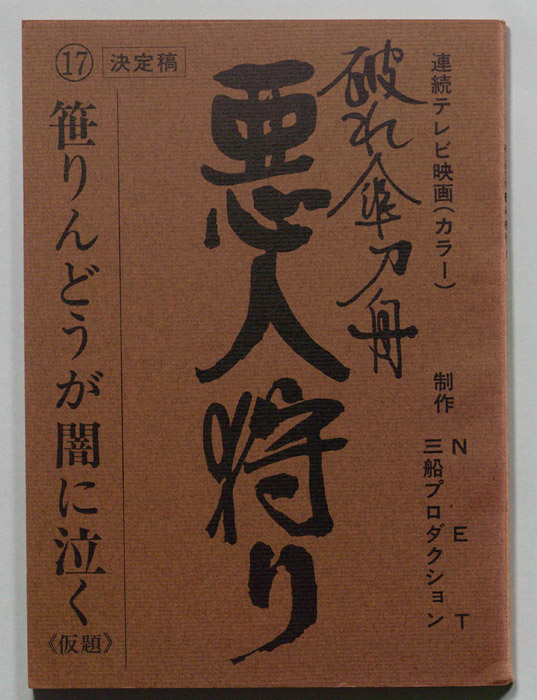 連続テレビ映画(カラー)
制作
NET
三船プロダクション
破れ傘刀舟
悪人狩り
⑰
決定稿
笹りんどうが闇に泣く
《仮題》